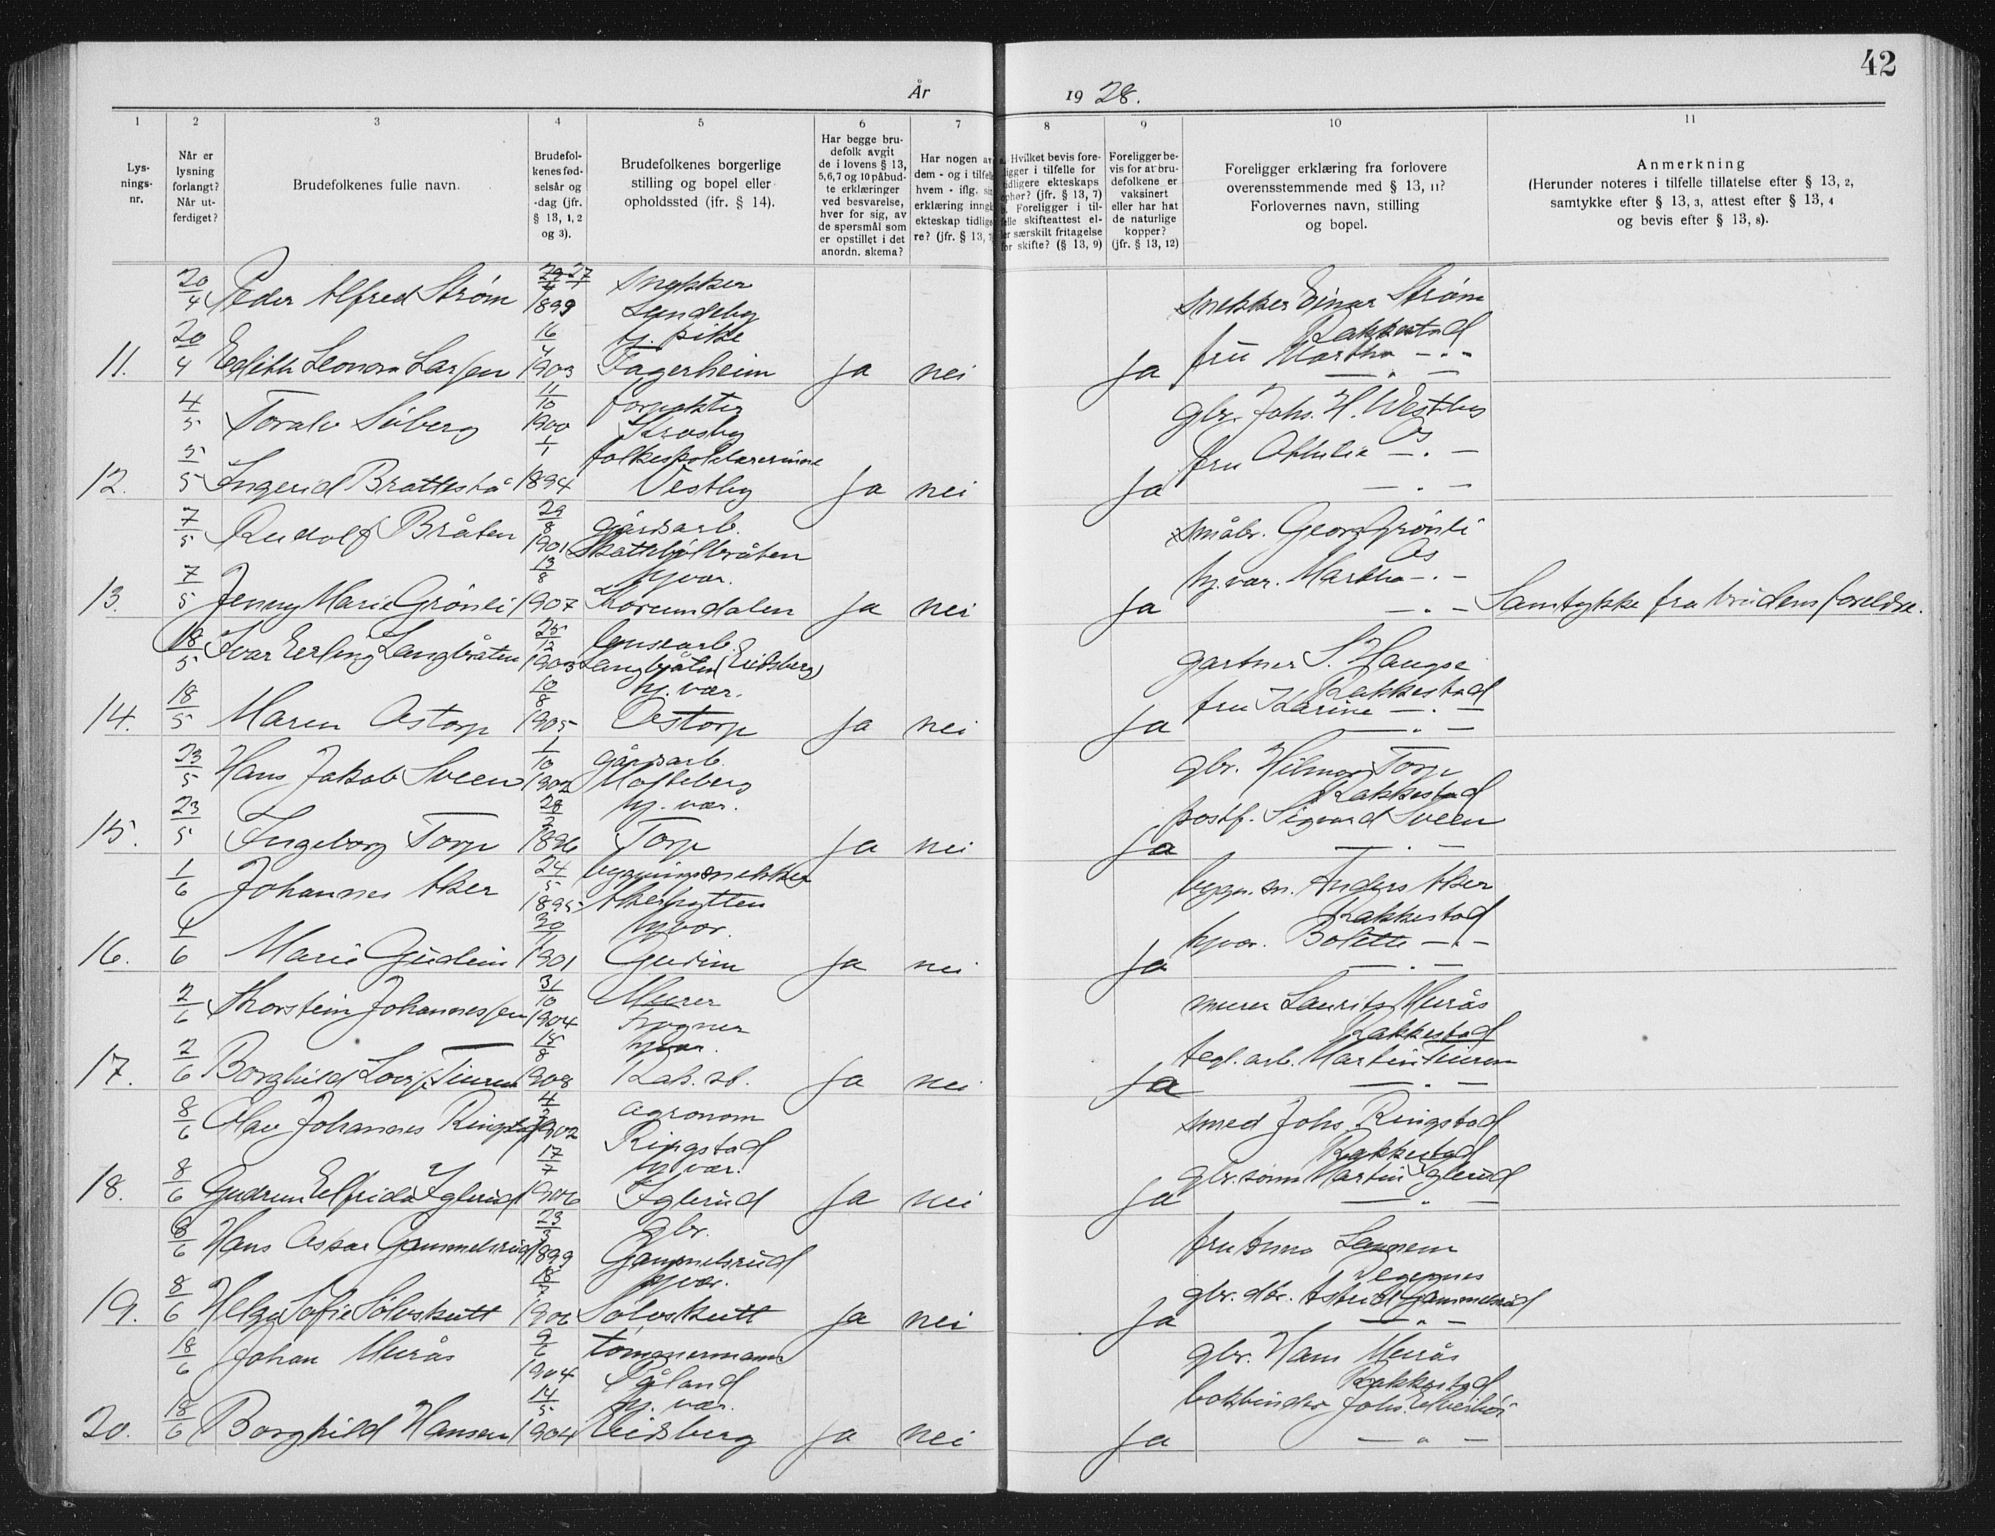 42
År 1928.
1 2 3 4 5 6 7 8 9 10 11
Lysningsnr.
Når er lysning forlangt? Når utferdiget?
Brudefolkenes fulle navn.
Brudefolkenes fødselsår og -dag (jfr. § 13, 1, 2 og 3).
Brudefolkenes borgerlige stilling og bopel eller opholdssted (ifr. § 14).
Har begge brudefolk avgit de i lovens § 13, 5,6,7 og 10 påbudte erklæringer ved besvarelse, hver for sig, av de spørsmål som er opstillet i det anordn. skema?
Har nogen av dem - og i tilfelle hvem - iflg. sin erklæring inngått ekteskap tidligere? (jfr. § 13, 7
a. Hvilket bevis foreligger i tilfelle for tidligere ekteskaps ophør? (jfr. § 13, 7) b. Foreligger i tilfelle skifteattest eller særskilt fritagelse for skifte? (§ 13, 9)
Foreligger bevis for at brudefolkene er vaksinert eller har hat de naturlige kopper? (jfr. § 13, 12)
Foreligger erklæring fra forlovere overensstemmende med § 13, 11? Forlovernes navn, stilling og bopel.
Anmerkning (Herunder noteres i tilfelle tillatelse efter § 13, 2, samtykke efter § 13, 3, attest efter § 13, 4 og bevis efter § 13, 8).
20/4 Peder Alfred Strøm 27 1899 snekker Lundeby snekker Einar Strøm Rakkestad
11. 20/4 Edith Leonora Larsen 16 1903 tj. pike Fagerheim Ja nei Ja fru Martha —"—
4/5 Toralv Siberg 11/10 1900 forpakter gbr. Johs. H. Westby Os
12. 5/5 Ingerid Brattestå 1/1 1894 folkeskolelærerinne Vestby Ja nei Ja fru Othilie —"—
7/5 Rudolf Bråten 29/8 1901 gårdsarb. Skattebølbråten småbr. Georg Grønli Os
13. 7/5 Jenny Marie Grønli 13/8 1907 hj.vær. Ja nei Ja hj.vær. Martha —"— Samtykke fra brudens foreldre.
18/5 Ivar Erling Langbråten 25/12 1903 lensearb. Langbråten (Eidsberg) gartner S. Haugse Rakkestad
14. 18/5 Maren Ostorp 10/8 1905 hj.vær. Ostorp Ja nei Ja fru Karine —"—
23/5 Hans Jakob Sveen 1/10 1902 gårdsarb. gbr. Hilmar Torp Rakkestad
15. 23/5 Ingeborg Torp 28 1896 hj.vær. Torp Ja nei Ja postf. Sigurd Sveen —"—
1/6 Johannes Aker 24/5 1895 bygningssnekker Akerhytten bygn.sn. Anders Aker Rakkestad
16. 1/6 Marie Gudim 30 1901 hj.vær. Gudim Ja nei Ja hj.vær. Bolette —"—
2/6 Thorstein Johannessen 31/10 1904 Murer Frogner murer Laurits Murås Rakkestad
17. 2/6 Borghild Lovise Tieren 15/8 1908 hj.vær. Rak.st. Ja nei Ja tegl.arb. Martin Tieren —"—
8/6 Olav Johannes Ringstad 4 1902 agronom Ringstad smed Johs. Ringstad Rakkestad
18. 8/6 Gudrun Elfrida Iglerud 17/7 1906 hj.vær. Iglerud Ja nei Ja gbr.sønn Martin Iglerud —"—
8/6 Hans Oskar Gammelsrud 23 1899 gbr. Gammelsrud fru Anna Degernes
19. 8/6 Helga Sofie Sølvskutt 18 1906 hj.vær. Sølvskutt Ja nei Ja gbr. dtr. Astrid Gammelsrud —"—
18/6 Johan Murås 9/6 1904 tømmermann gbr. Hans Murås Rakkestad
20. 18/6 Borghild Hansen 14/5 1904 hj.vær. Eidsberg Ja nei Ja bokbinder Johs. Elverhøi —"—